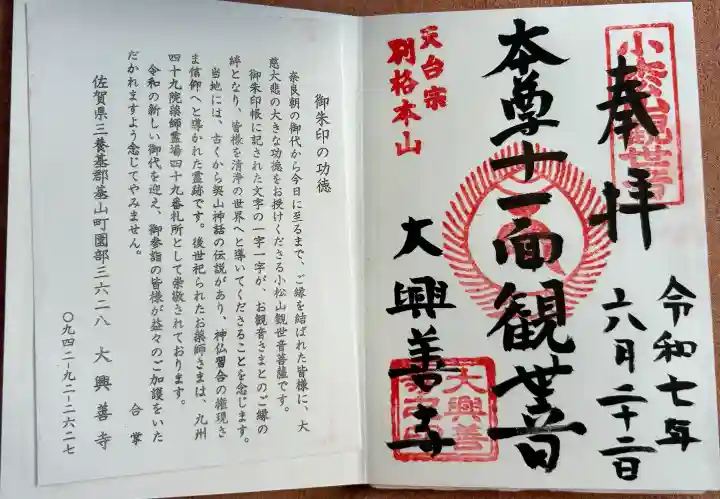 小松山観世音
奉拝
令和七年
六月二十二日
本尊十一面観世音
天台宗
別格本山
大興善寺
大興善
御朱印の功徳
奈良朝の御代から今日に至るまで、ご縁を結ばれた皆様に、大
慈大悲の大きな功徳をお授けくださる小松山観世音菩薩です。
御朱印帳に記された文字の一字一字が、お観音さまとのご縁の
絆となり、皆様を清浄の世界へと導いてくださることを念じます。
当地には、古くから契山神話の伝説があり、神仏習合の権現さ
ま信仰へと導かれた霊跡です。後世祀られたお薬師さまは、九州
四十九院薬師霊場四十九番札所として崇敬されております。
令和の新しい御代を迎え、御参詣の皆様が益々のご加護をいた
だかれますよう念じてやみません。
合掌
佐賀県三養基郡基山町園部三六二八 大興善寺
〇九四二-九二-二六二七